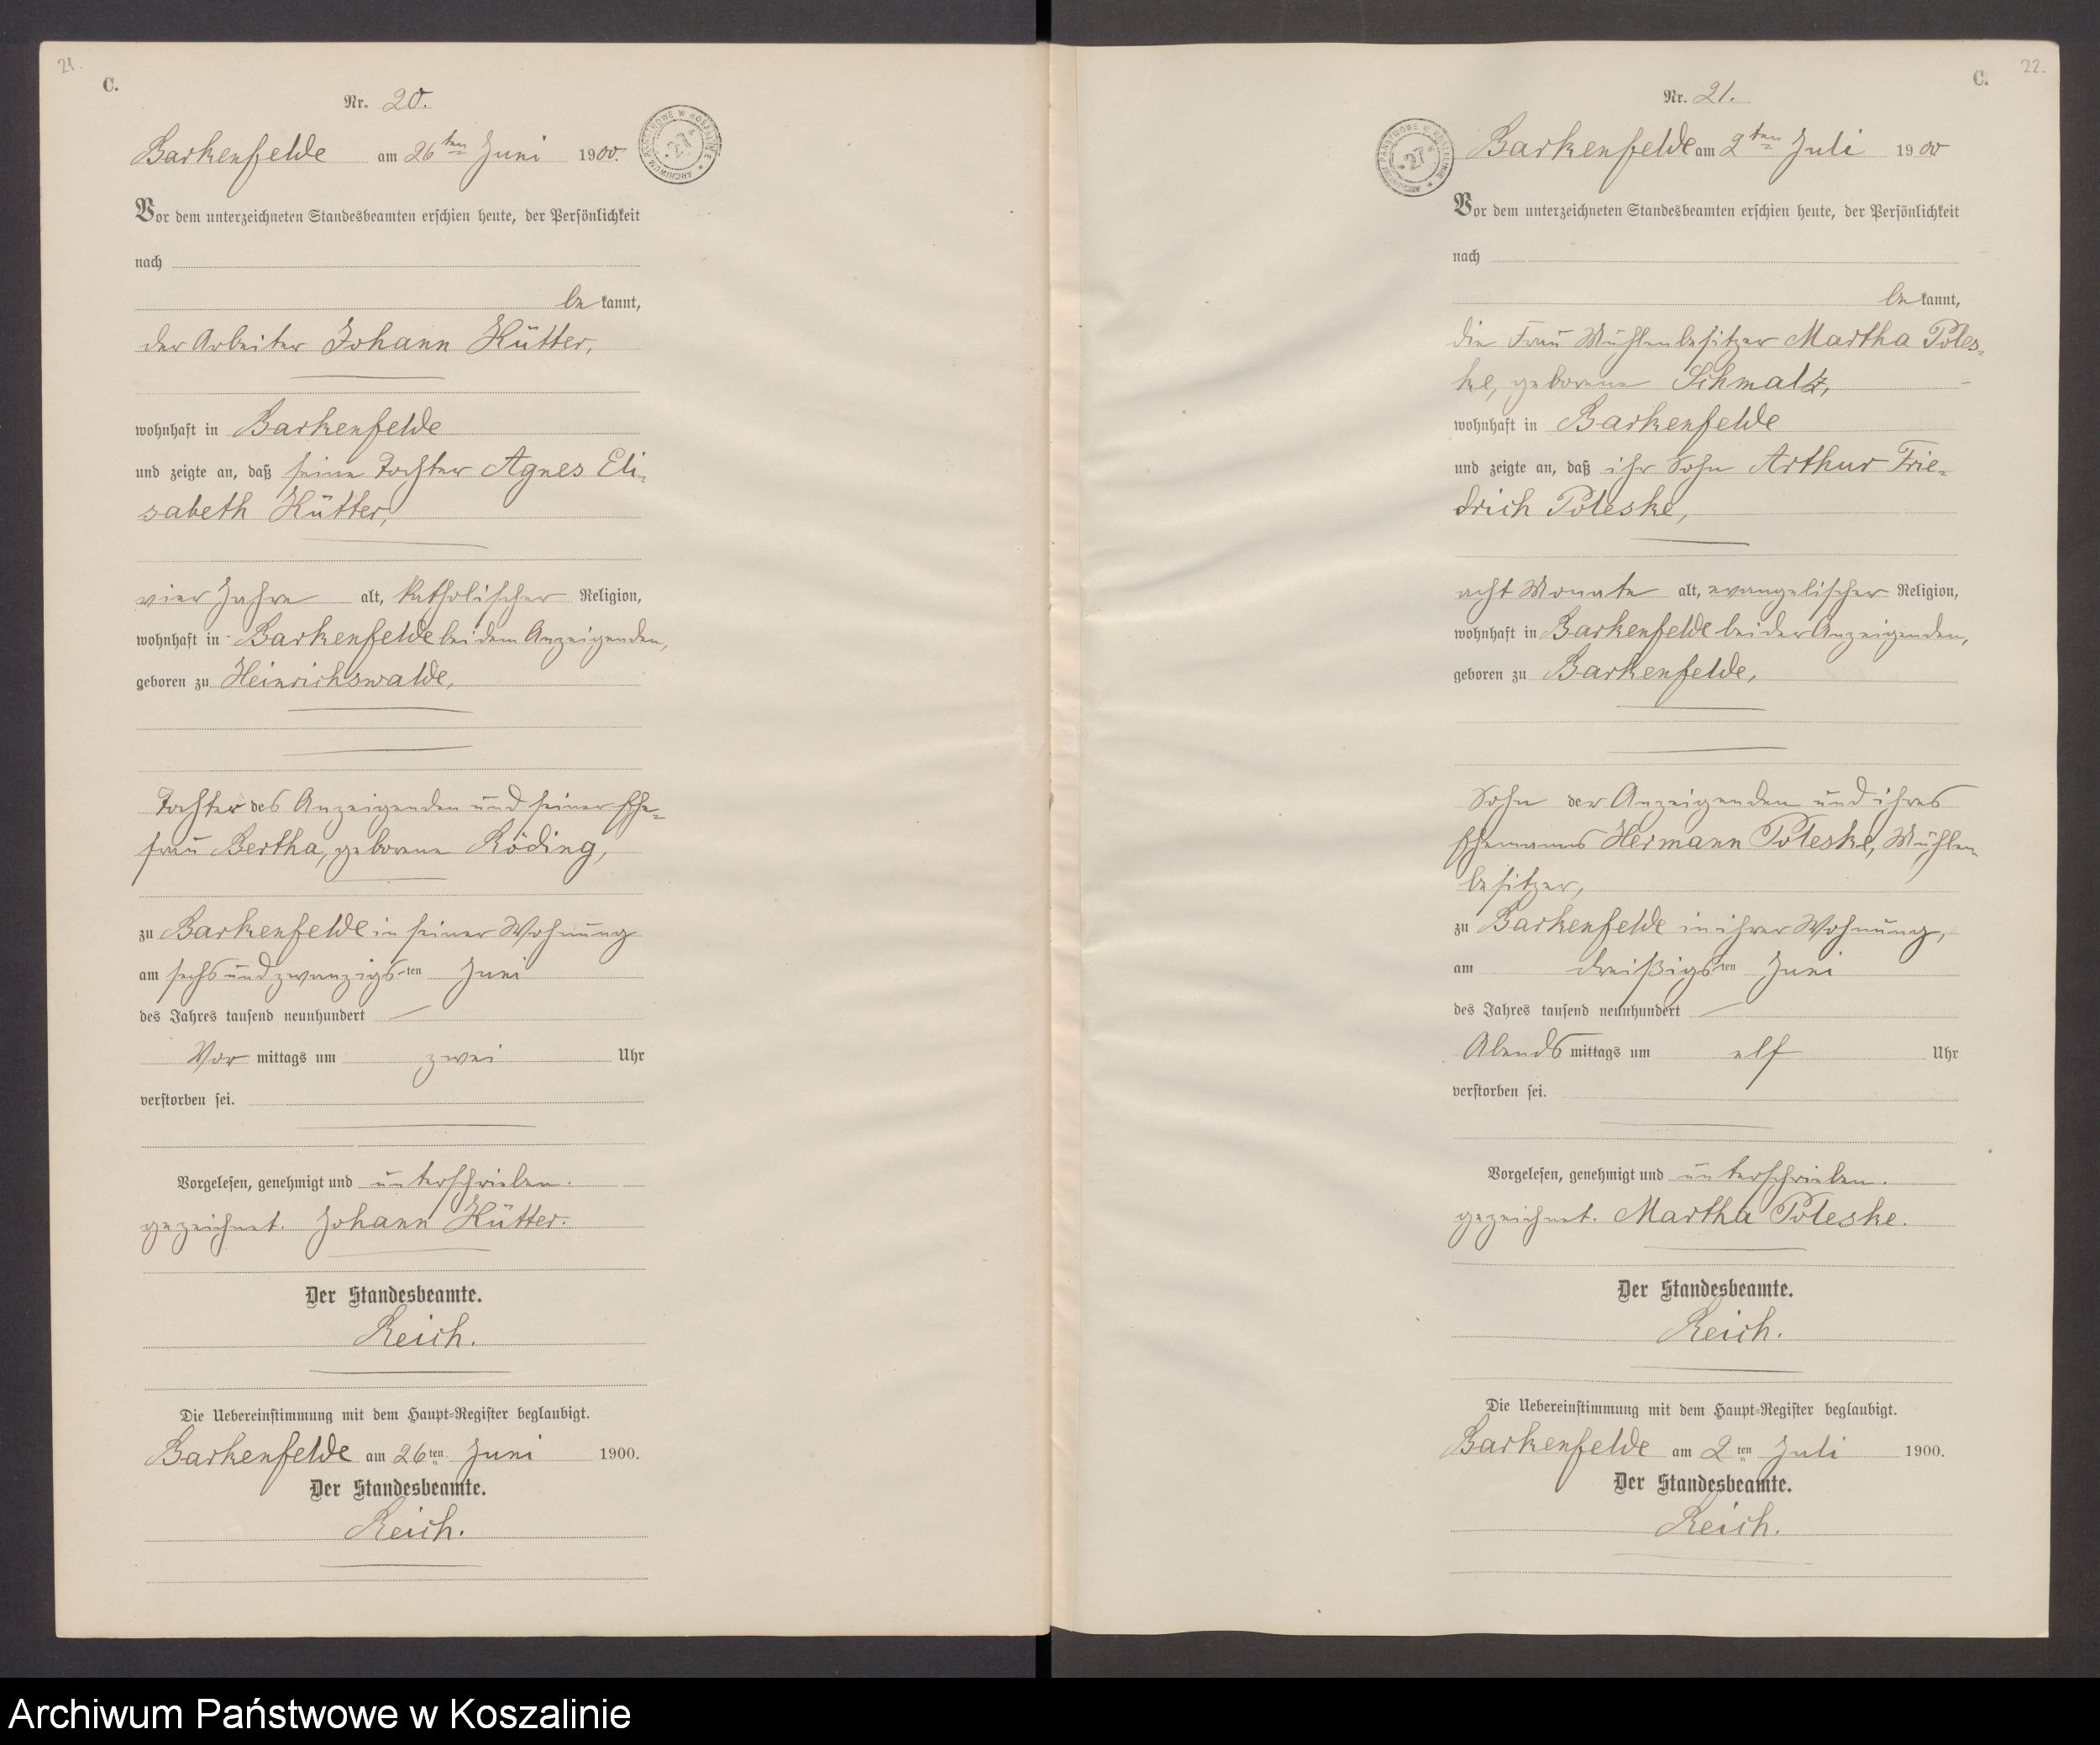 21.
C.
Nr. 20.
Barkenfelde am 26ten Juni 1900.
Vor dem unterzeichneten Standesbeamten erschien heute, der Persönlichkeit
nach
be kannt,
der Arbeiter Johann Hütter,
wohnhaft in Barkenfelde
und zeigte an, daß seine Tochter Agnes Eli-
sabeth Hütter,
vier Jahre alt, katholischer Religion,
wohnhaft in Barkenfelde bei dem Anzeigenden,
geboren zu Heinrichswalde,
Tochter des Anzeigenden und seiner Ehe-
frau Bertha, geborene Röding,
zu Barkenfelde in seiner Wohnung
am sechsundzwanzigsten Juni
des Jahres tausend neunhundert
Vor mittags um zwei Uhr
verstorben sei.
Vorgelesen, genehmigt und unterschrieben.
gezeichnet. Johann Hütter.
Der Standesbeamte.
Reich.
Die Uebereinstimmung mit dem Haupt-Register beglaubigt.
Barkenfelde am 26ten Juni 1900.
Der Standesbeamte.
Reich.
ARCHIWUM PAŃSTWOWE W KOSZALINIE
27
22.
C.
Nr. 21.
Barkenfelde am 2ten Juli 1900
Vor dem unterzeichneten Standesbeamten erschien heute, der Persönlichkeit
nach
be kannt,
die Frau Mühlenbesitzer Martha Poles-
ke, geborene Schmaltz,
wohnhaft in Barkenfelde
und zeigte an, daß ihr Sohn Arthur Frie-
drich Poleske,
acht Monate alt, evangelischer Religion,
wohnhaft in Barkenfelde bei der Anzeigenden,
geboren zu Barkenfelde,
Sohn der Anzeigenden und ihres
Ehemanns Hermann Poleske, Mühlen
besitzer,
zu Barkenfelde in ihrer Wohnung,
am dreißigsten Juni
des Jahres tausend neunhundert
Abends mittags um elf Uhr
verstorben sei.
Vorgelesen, genehmigt und unterschrieben.
gezeichnet. Martha Poleske.
Der Standesbeamte.
Reich.
Die Uebereinstimmung mit dem Haupt-Register beglaubigt.
Barkenfelde am 2ten Juli 1900.
Der Standesbeamte.
Reich.
ARCHIWUM PAŃSTWOWE W KOSZALINIE
27
Archiwum Państwowe w Koszalinie